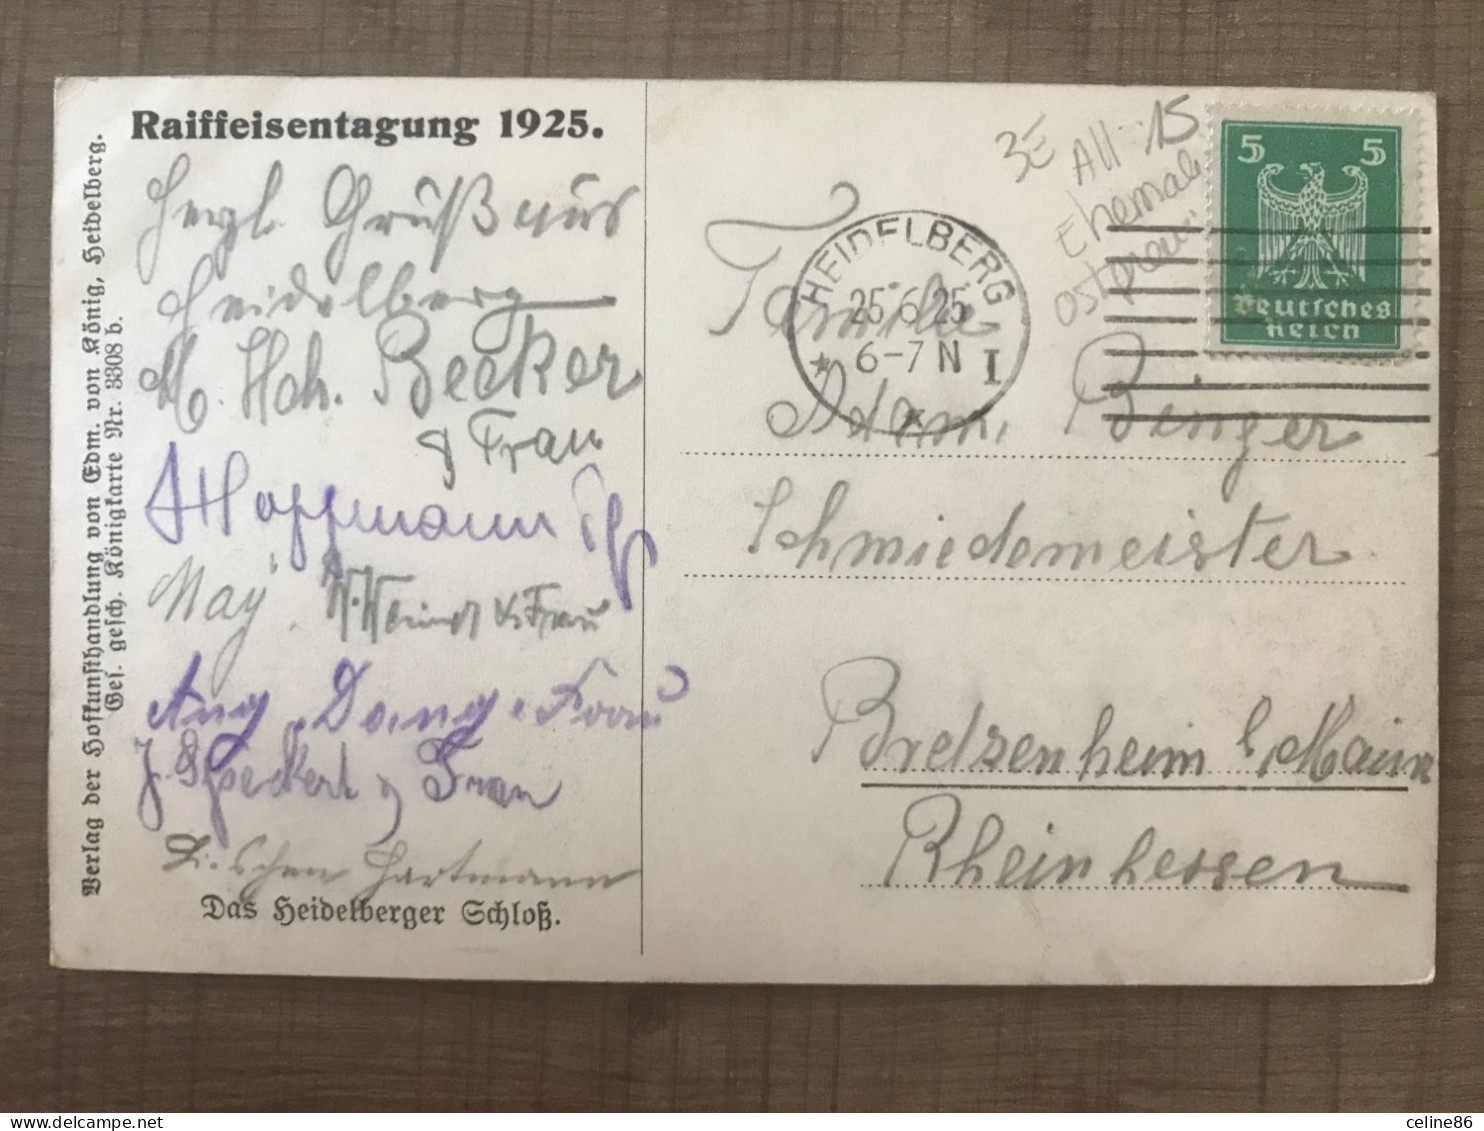 Raiffeisentagung 1925.
Verlag der Hofkunsthandlung von Edm. von König, Heidelberg.
Ges. gesch. Königkarte Nr. 3308 b.
Herzl. Grüß aus
Heidelberg
M. Hch. Becker
& Frau
Hoffmann
May.
& Frau
Aug. Dang. Frau
J. Speckert & Frau
Hartmann
Das Heidelberger Schloß.
3E
All 15
Ehemals
HEIDELBERG
25 6 25
6-7 N
I
5 5
Deutsches
Reich
Familie
Adam Binger
Schmiedemeister
Bretzenheim b/Mainz
Rheinhessen
celine86